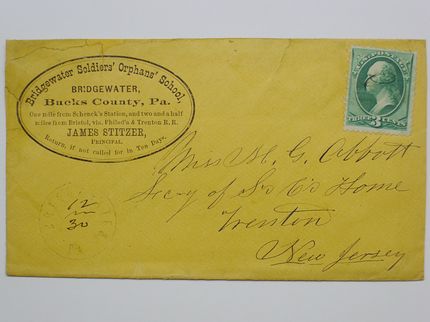 Bridgewater Soldiers' Orphans' School,
BRIDGEWATER,
Bucks County, Pa.
One mile from Schenck's Station, and two and a half
miles from Bristol, via. Philad'a & Trenton R. R.
JAMES STITZER,
PRINCIPAL.
Return, if not called for in Ten Days.
THREE CENTS
3
12
30
Miss H. G. Abbott
Sec'y of Home
Trenton
New Jersey